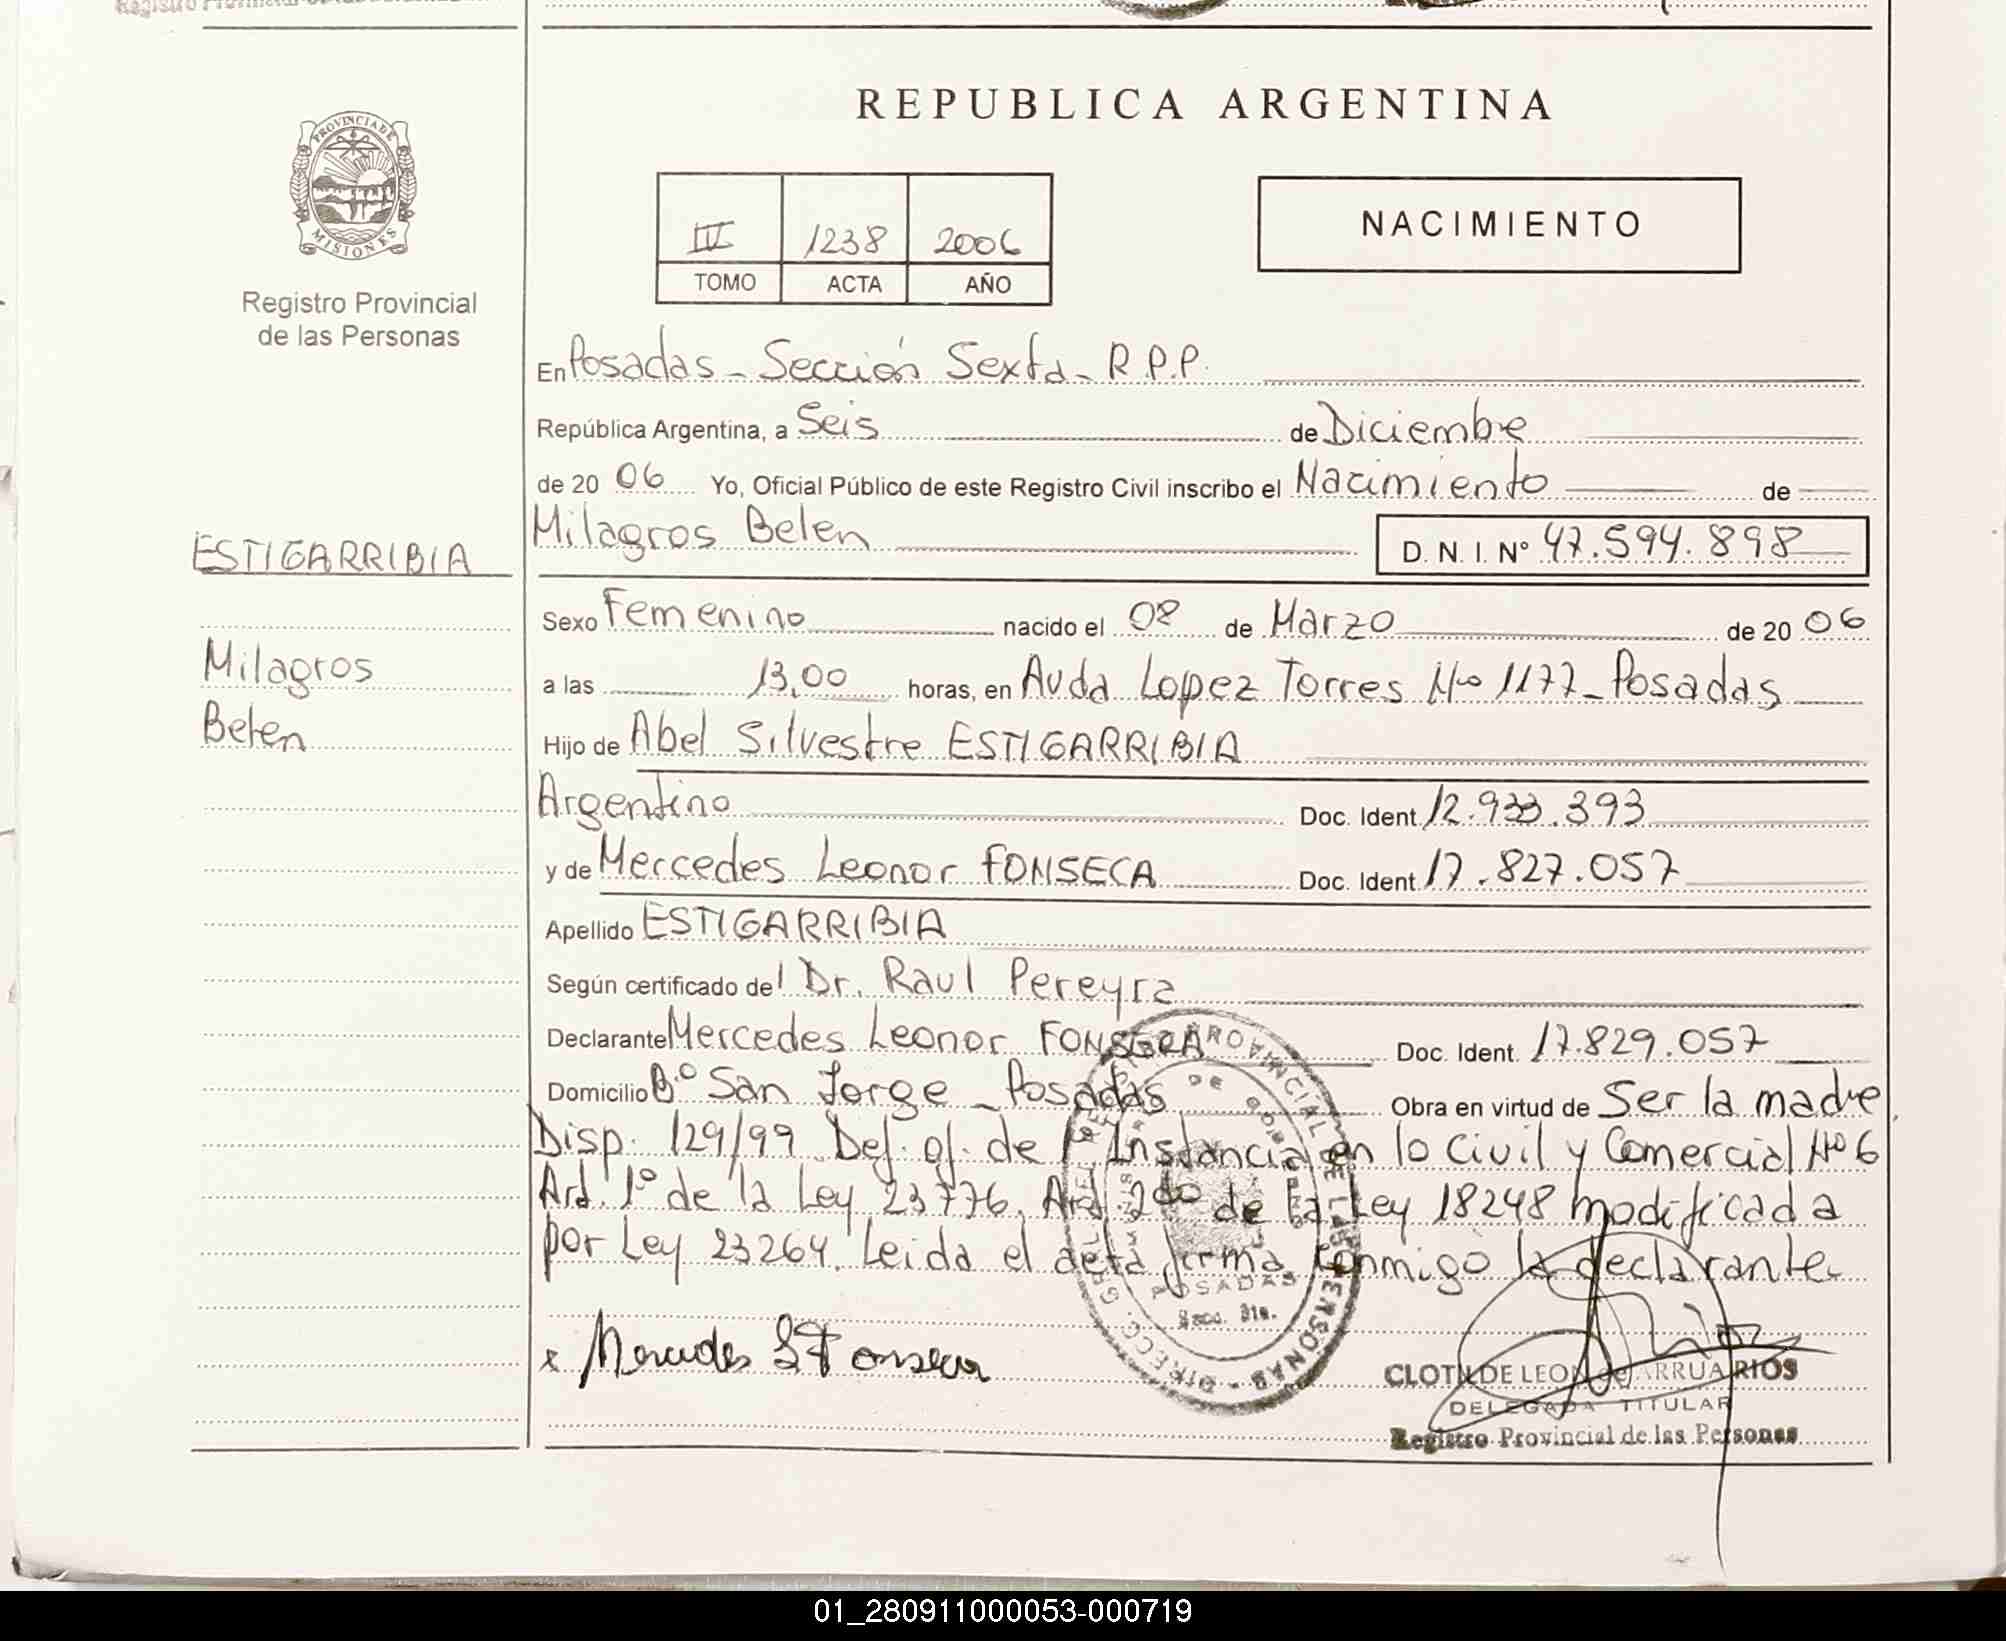 REPUBLICA ARGENTINA
PROVINCIA DE
MISIONES
Registro Provincial
de las Personas
III 1238 2006
TOMO ACTA AÑO
NACIMIENTO
En Posadas - Sección Sexta - R.P.P.
República Argentina, a Seis de Diciembre
de 20 06 Yo, Oficial Público de este Registro Civil inscribo el Nacimiento de
Milagros Belen D. N. I. Nº 47.594.898
ESTIGARRIBIA
Milagros
Belen
Sexo Femenino nacido el 08 de Marzo de 20 06
a las 13,00 horas, en Avda Lopez Torres Nº 1177 - Posadas
Hijo de Abel Silvestre ESTIGARRIBIA
Argentino Doc. Ident. 12.933.393
y de Mercedes Leonor FONSECA Doc. Ident. 17.827.057
Apellido ESTIGARRIBIA
Según certificado del Dr. Raul Pereyra
Declarante Mercedes Leonor FONSECA Doc. Ident. 17.829.057
Domicilio Bº San Jorge - Posadas Obra en virtud de Ser la madre
Disp. 129/99 Def. of. de 1º Instancia en lo Civil y Comercial Nº 6
Art. 1º de la Ley 23776, Art. 2do de la Ley 18248 modificada
por Ley 23264. Leida el acta firma conmigo la declarante
x Mercedes L Fonseca
POSADAS
CLOTILDE LEON de ARRUA RIOS
DELEGADA TITULAR
Registro Provincial de las Personas
01_280911000053-000719